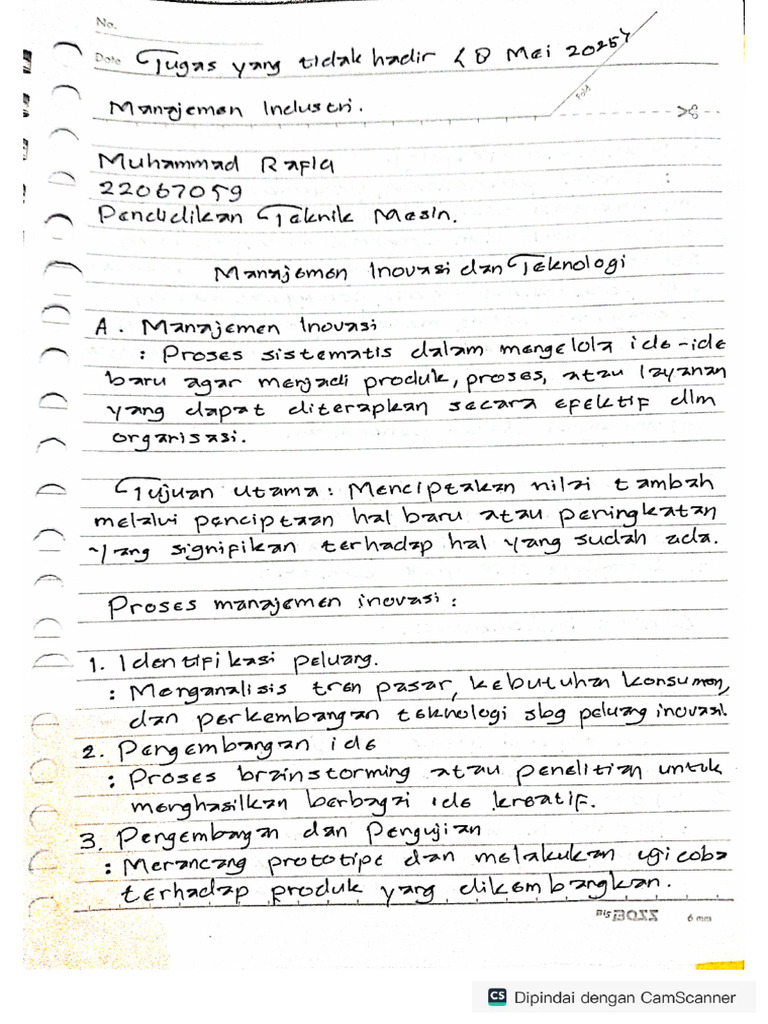 No.
Date Tugas yang tidak hadir (8 Mei 2025)
Fold
Manajemen Industri.
Muhammad Rafla
22067059
Pendidikan Teknik Mesin.
Manajemen Inovasi dan Teknologi
A. Manajemen Inovasi
: Proses sistematis dalam mengelola ide-ide
baru agar menjadi produk, proses, atau layanan
yang dapat diterapkan secara efektif dlm
organisasi.
Tujuan utama: Menciptakan nilai tambah
melalui penciptaan hal baru atau peningkatan
yang signifikan terhadap hal yang sudah ada.
Proses manajemen inovasi:
1. Identifikasi peluang.
: Menganalisis tren pasar, kebutuhan konsumen,
dan perkembangan teknologi sbg peluang inovasi.
2. Pengembangan ide
: Proses brainstorming atau penelitian untuk
menghasilkan berbagai ide kreatif.
3. Pengembangan dan Pengujian
: Merancang prototipe dan melakukan uji coba
terhadap produk yang dikembangkan.
BOSS 6 mm
CS Dipindai dengan CamScanner